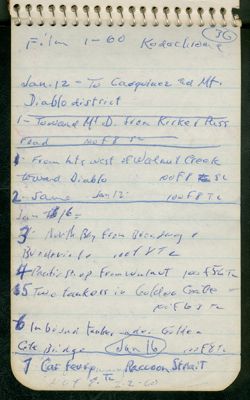 36
Film 1-60 Kodachrome
Jan. 12 - To Carquinez and Mt.
Diablo district
1 - Toward Mt D. from Kirker Pass
road 100 F8 Tc
1 - From hts west of Walnut Creek
toward Diablo 100 F8 Tc
2 - Same Jan 12: 100 F8 Tc
Jan 16 =
3 - North Bay from Broadway &
Buchanan 100 F 8 Tc
4 Photo shop from walnut
5 Two tankers in Golden Gate -
100 F 6 3 Tc
6 Inbound tanker under Golden
Gate Bridge Jan 16 100 F8 Tc
7 Car ferry Raccoon Strait